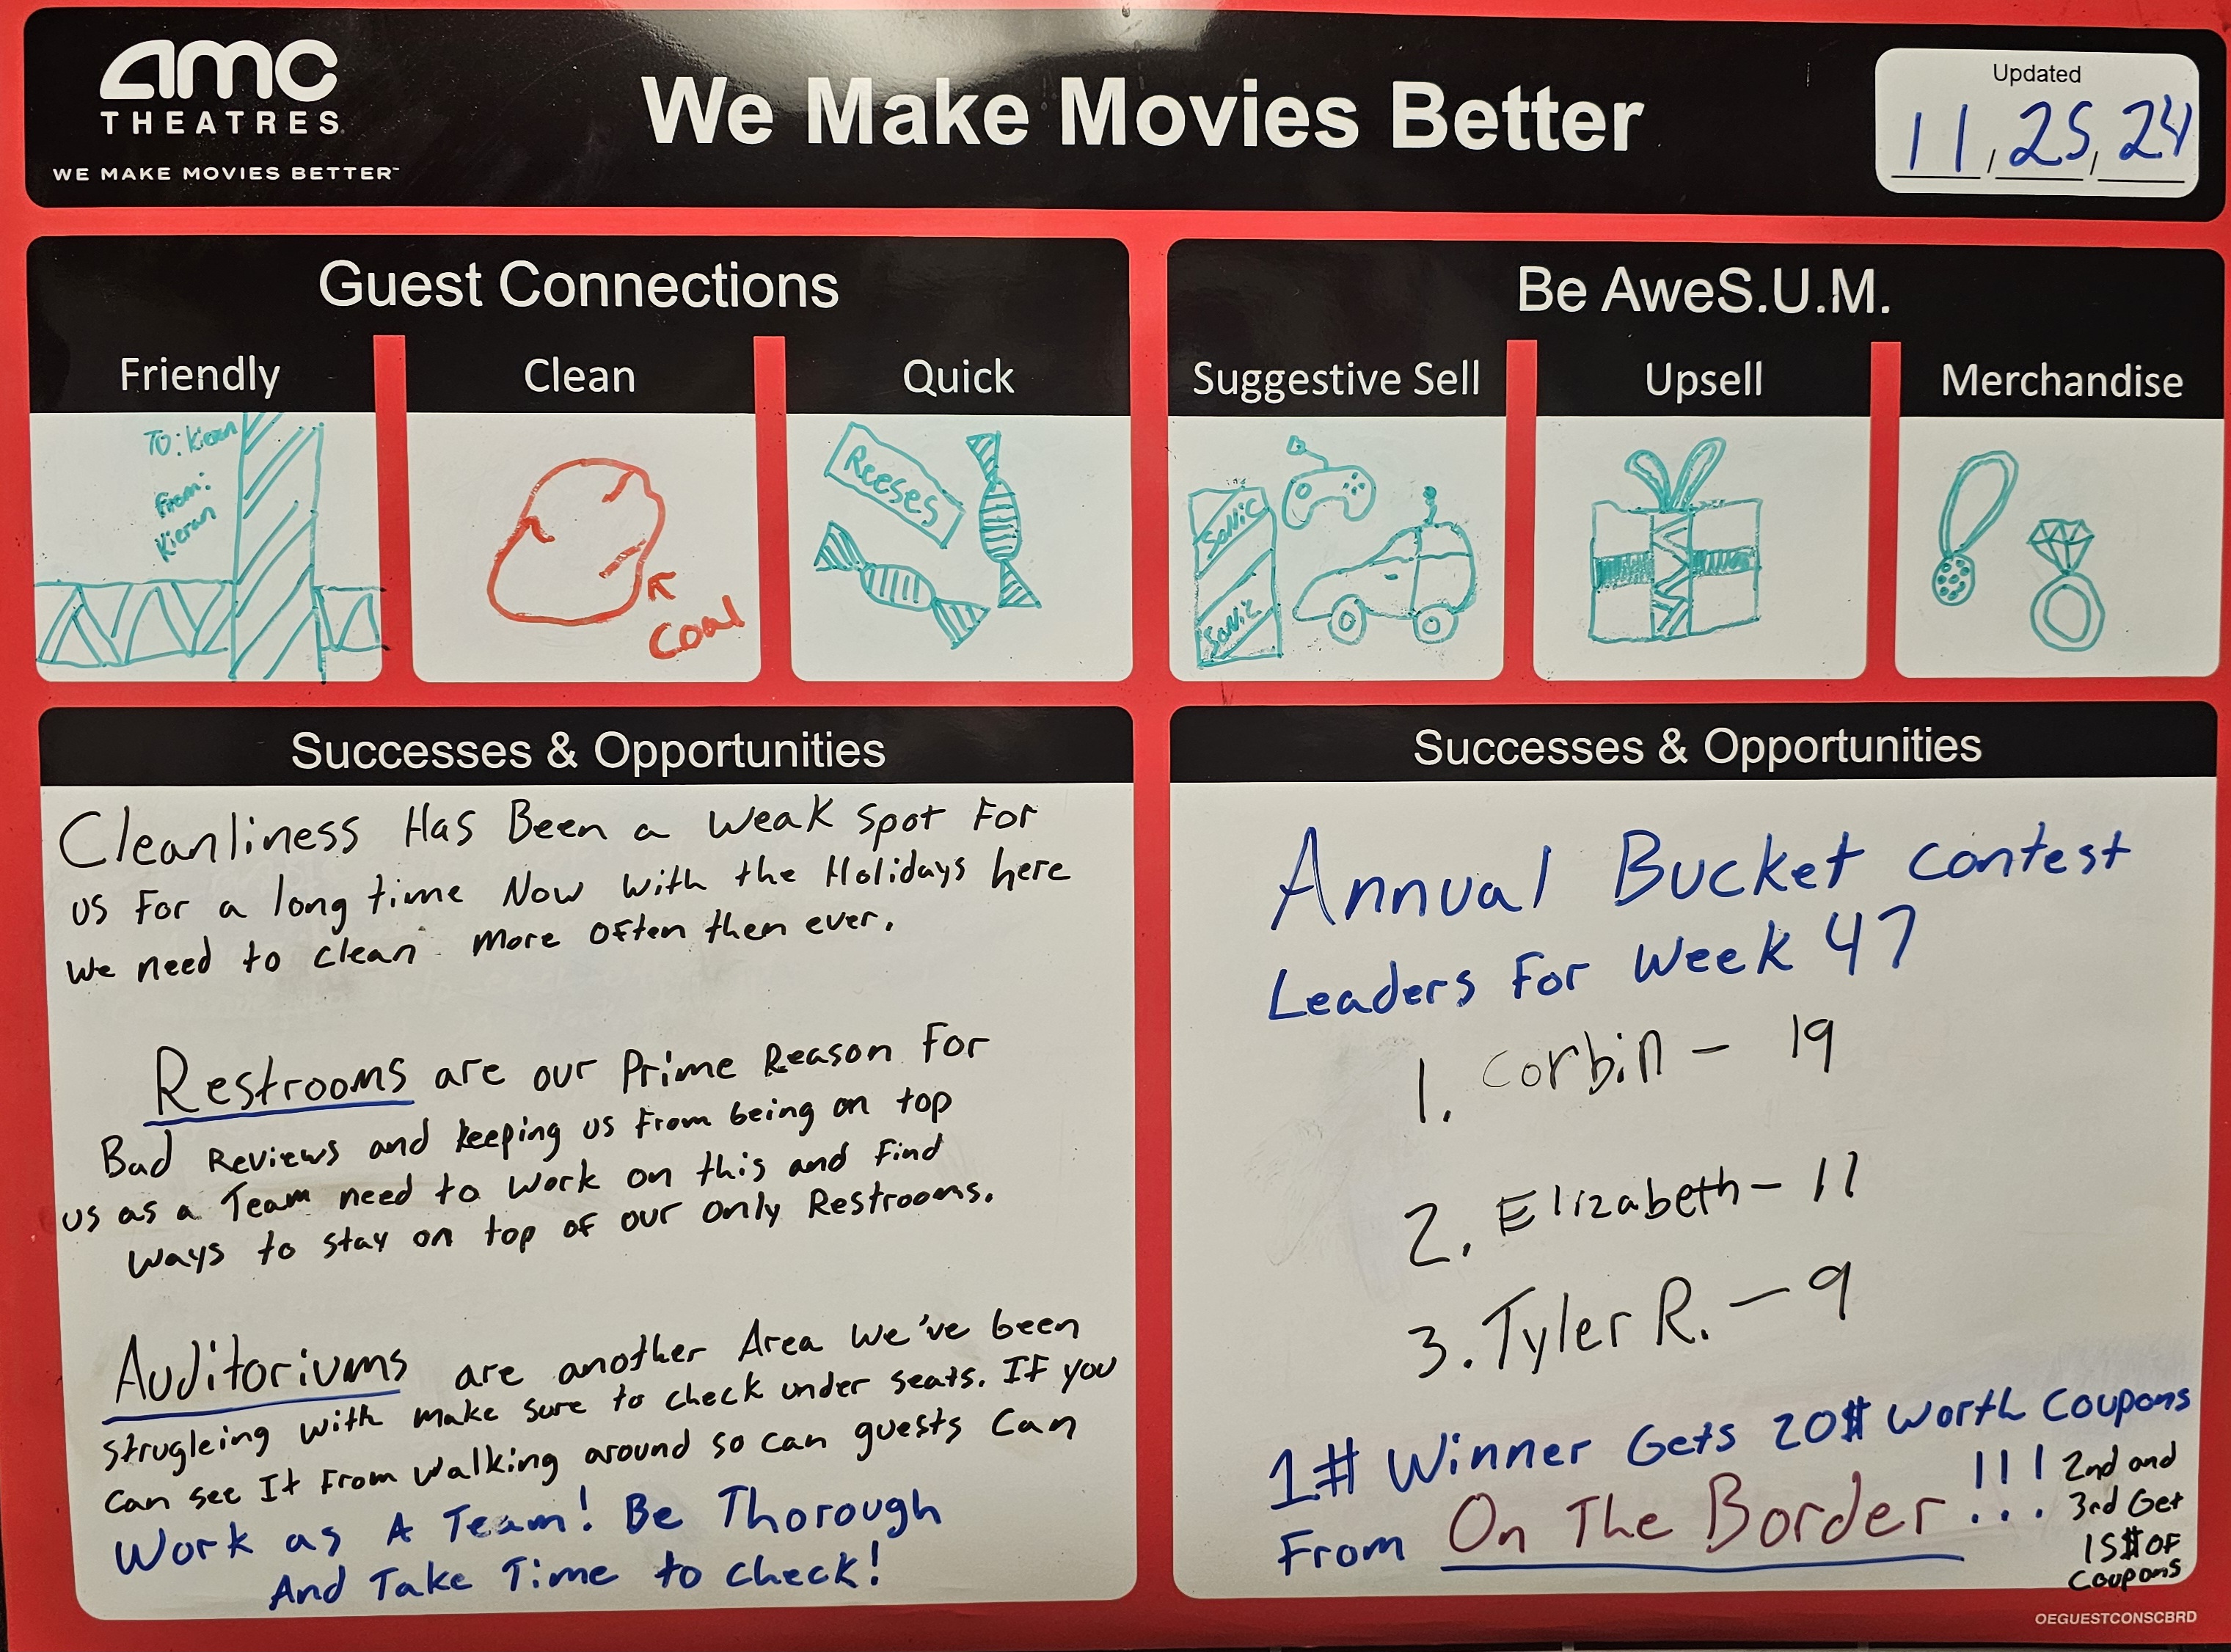 amc
THEATRES
WE MAKE MOVIES BETTER™
We Make Movies Better
Updated
11/25/24
Guest Connections
Friendly
Clean
Quick
TO: Kieran
From:
Kieran
Coal
Reeses
Be AweS.U.M.
Suggestive Sell
Upsell
Merchandise
SoNic
SoNic
Successes & Opportunities
Cleanliness Has Been a weak spot For
us For a long time Now with the Holidays here
we need to clean more often then ever.
Restrooms are our Prime Reason For
Bad Reviews and keeping us From being on top
us as a Team need to work on this and Find
ways to stay on top of our only Restrooms.
Auditoriums are another Area we've been
strugleing with make sure to check under seats. IF you
can see It From walking around so can guests Can
Work as A Team! Be Thorough
And Take Time to check!
Successes & Opportunities
Annual Bucket contest
Leaders For Week 47
1. Corbin - 19
2. Elizabeth - 11
3. Tyler R. - 9
1# Winner Gets 20$ worth Coupons
From On The Border!!!
2nd and
3rd Get
15$ OF
Coupons
OEGUESTCONSCBRD